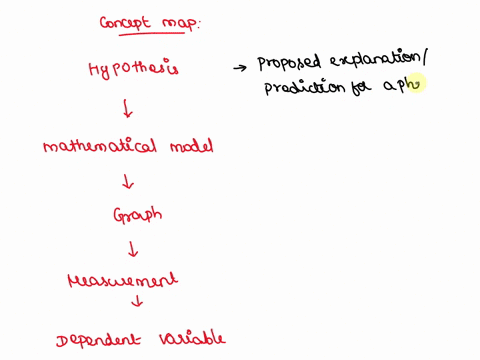 Concept map:
Hypothesis → Proposed explanation/
prediction for a ph
↓
Mathematical model
↓
Graph
↓
Measurement
↓
Dependent variable